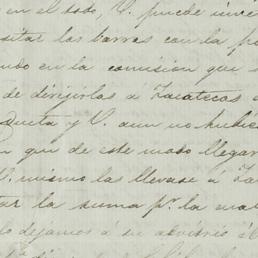 en el todo, V. puede inve
sitar las barras con la po
ndo en la comision que s
de dirijirlas á Zacatecas
queta y V. aun no hubie
n que de este modo llegar
V. mismo las llevase á Za
tar la suma pr. la ma
lo dejamos á su advitrio é